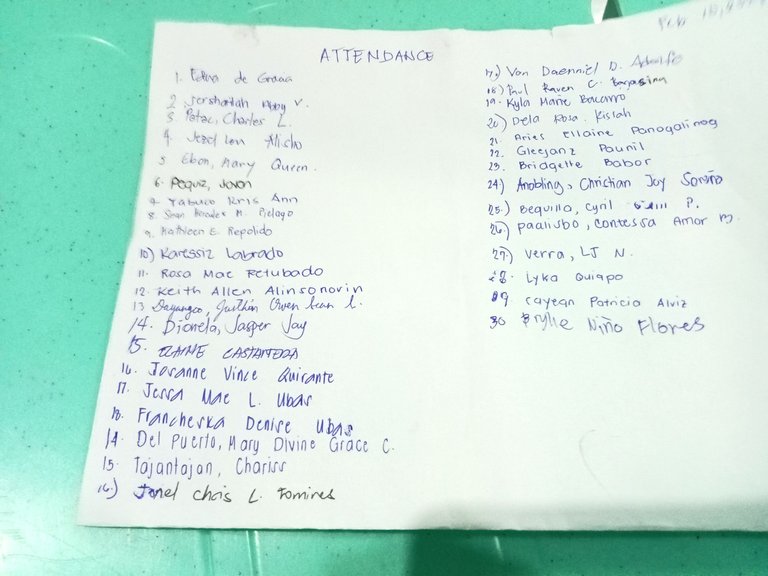 ATTENDANCE
1. Edna de Gracia
2. Jershariah Abby V.
3 Patac, Charles L.
4. Jezel Lou
5 Ebon, Mary Queen.
6. Pequiz, Jovan
7. Yabuco Kris Ann
8. Sean M. Pielago
9. Mathleen E. Repolido
10) Karessiz Labrado
11. Rosa Mae Retubado
12. Keith Allen Alinsonorin
13 Owen Sean L.
14. Dionela, Jasper Jay
15. ELAINE CASTAÑEDA
16. Josanne Vince Quirante
17. Jessa Mae L. Ubas
18. Francheska Denise Ubas
14. Del Puerto, Mary Divine Grace C.
15. Tajantajan, Chariss
16) Jonel Chris L. Fomines
17) Von Daenniel D. Adolfo
18) Paul Raven C.
19. Kyla Marie Bacarro
20) Dela Rosa, Kisiah
21. Aries Ellaine Panogalinog
22. Gleejanz Paunil
23. Bridgette Babor
24) Anobling, Christian Joy
25.) Bequillo, Cyril P.
26.) Paalisbo, Contessa Amor M.
27.) Verra, LJ N.
28. Lyka Quiapo
29 Cayean Patricia Alviz
30 Brylle Niño Flores